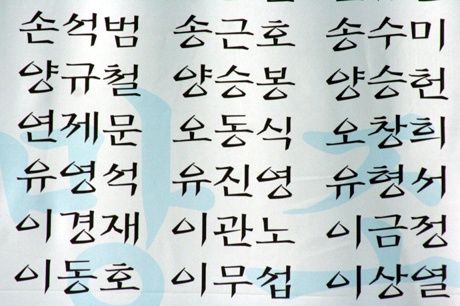 손석범 송근호 송수미
양규철 양승봉 양승헌
연제문 오동식 오창희
유영석 유진영 유형서
이경재 이관노 이금정
이동호 이무섭 이상열